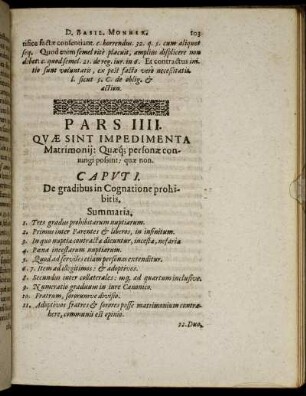 D. BASIL. MONNER. 103
tifice factæ consentiant. c. horrendus. 32. q. 5. cum aliquot
seq. Quod enim semel ritè placuit, amplius displicere non
debet. c. quod semel. 21. de reg. iur. in 6. Et contractus ini-
tio sunt voluntatis, ex post facto verò necessitatis.
l. sicut 5. C. de oblig. &
action.
PARS IIII.
QVÆ SINT IMPEDIMENTA
Matrimonij: Quæq; personæ con-
iungi possint, quæ non.
CAPVT I.
De gradibus in Cognatione prohi-
bitis.
Summaria.
1. Tres gradus prohibitarum nuptiarum.
2. Primus inter Parentes & liberos, in infinitum.
3. In quo nuptiæ contractæ dicuntur, incestæ, nefariæ
4. Pœna incestarum nuptiarum.
5. Quod ad serviles etiam personas extenditur.
6. 7. Item ad illegitimos: & adoptivos.
8. Secundus inter collaterales: usq. ad quartum inclusive.
9. Numeratio graduum in iure Canonico.
10. Fratrum, sororumve divisio.
11. Adoptivos fratres & sorores posse matrimonium contra-
here, communis est opinio.
12. Duo,